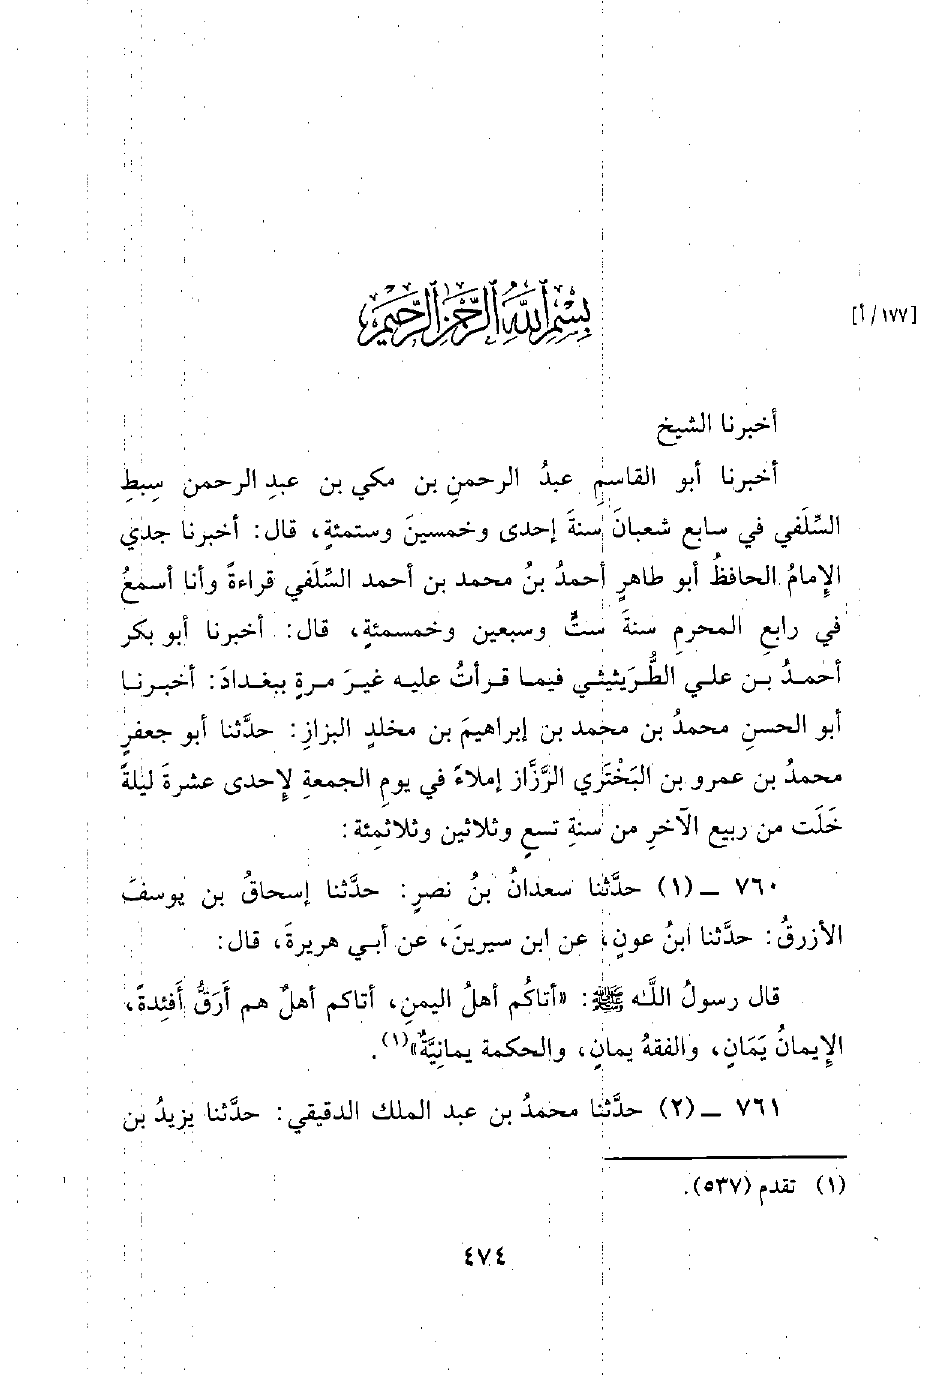 [١٧٧/أ]
بِسْمِ اللَّهِ الرَّحْمَنِ الرَّحِيمِ
أخبرنا الشيخ
أخبرنا أبو القاسمِ عبدُ الرحمنِ بن مكي بن عبدِ الرحمن سِبطِ
السِّلَفي في سابع شعبانَ سنةَ إحدى وخمسينَ وستمئةٍ، قال: أخبرنا جدي
الإمامُ الحافظُ أبو طاهرٍ أحمدُ بنُ محمد بن أحمد السِّلَفي قراءةً وأنا أسمعُ
في رابعِ المحرمِ سنةَ ستٍّ وسبعين وخمسمئةٍ، قال: أخبرنا أبو بكر
أحمدُ بن علي الطُّرَيثيثي فيما قرأتُ عليه غيرَ مرةٍ ببغدادَ: أخبرنا
أبو الحسنِ محمدُ بن محمد بن إبراهيمَ بن مخلدٍ البزازِ: حدَّثنا أبو جعفرٍ
محمدُ بن عمرو بن البَخْتَري الرَّزَّاز إملاءً في يومِ الجمعةِ لإحدى عشرةَ ليلةً
خَلَت من ربيع الآخرِ من سنةِ تسعٍ وثلاثين وثلاثمِئة:
٧٦٠ ــ (١) حدَّثنا سعدانُ بنُ نصرٍ: حدَّثنا إسحاقُ بن يوسفَ
الأزرقُ: حدَّثنا ابنُ عونٍ، عن ابن سيرينَ، عن أبي هريرةَ، قال:
قال رسولُ اللَّه ﷺ: «أتاكُم أهلُ اليمنِ، أتاكم أهلٌ هم أَرَقُّ أَفئِدةً،
الإِيمانُ يَمَانٍ، والفقهُ يمانٍ، والحكمة يمانِيَّةٌ»(١).
٧٦١ ــ (٢) حدَّثنا محمدُ بن عبد الملك الدقيقي: حدَّثنا يزيدُ بن
(١) تقدم (٥٣٧).
٤٧٤